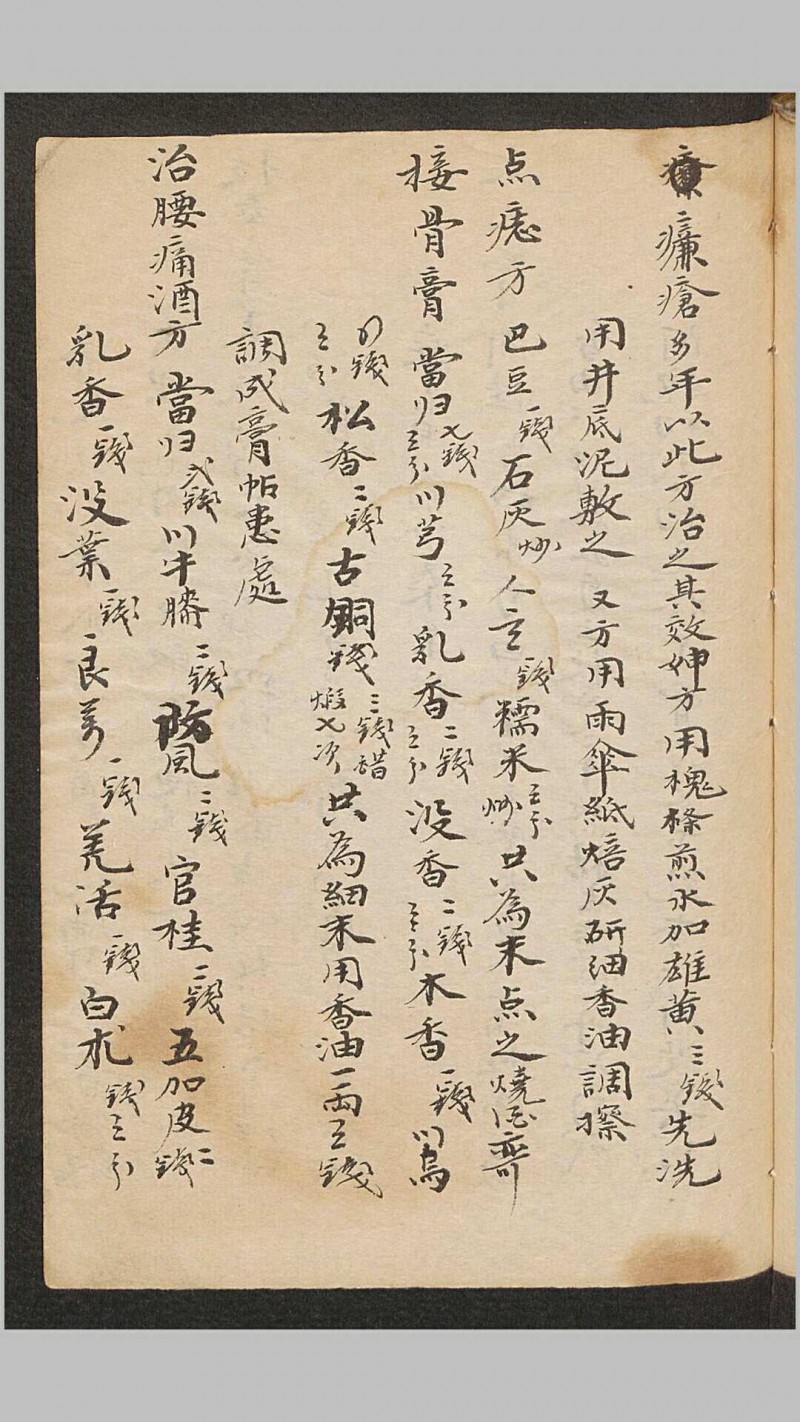 療臁瘡多年以此方治之其效妽方用槐條煎水加雄黃三錢先洗
用井底泥敷之 又方用雨傘紙焙灰研細香油調擦
点痣方 巴豆一錢石灰炒 人言一錢糯米炒五分共為末点之燒酒
接骨膏 當归七錢五分川芎五分乳香二錢五分没香二錢五分木香一錢川烏
錢五分松香二錢古銅錢三錢醋煅七次共為細末用香油一兩五錢
調成膏帖患處
治腰痛酒方 當归弍錢川牛膝二錢防風二錢官桂二錢五加皮二錢
乳香一錢没葉一錢良芎一錢羌活一錢白朮錢五分